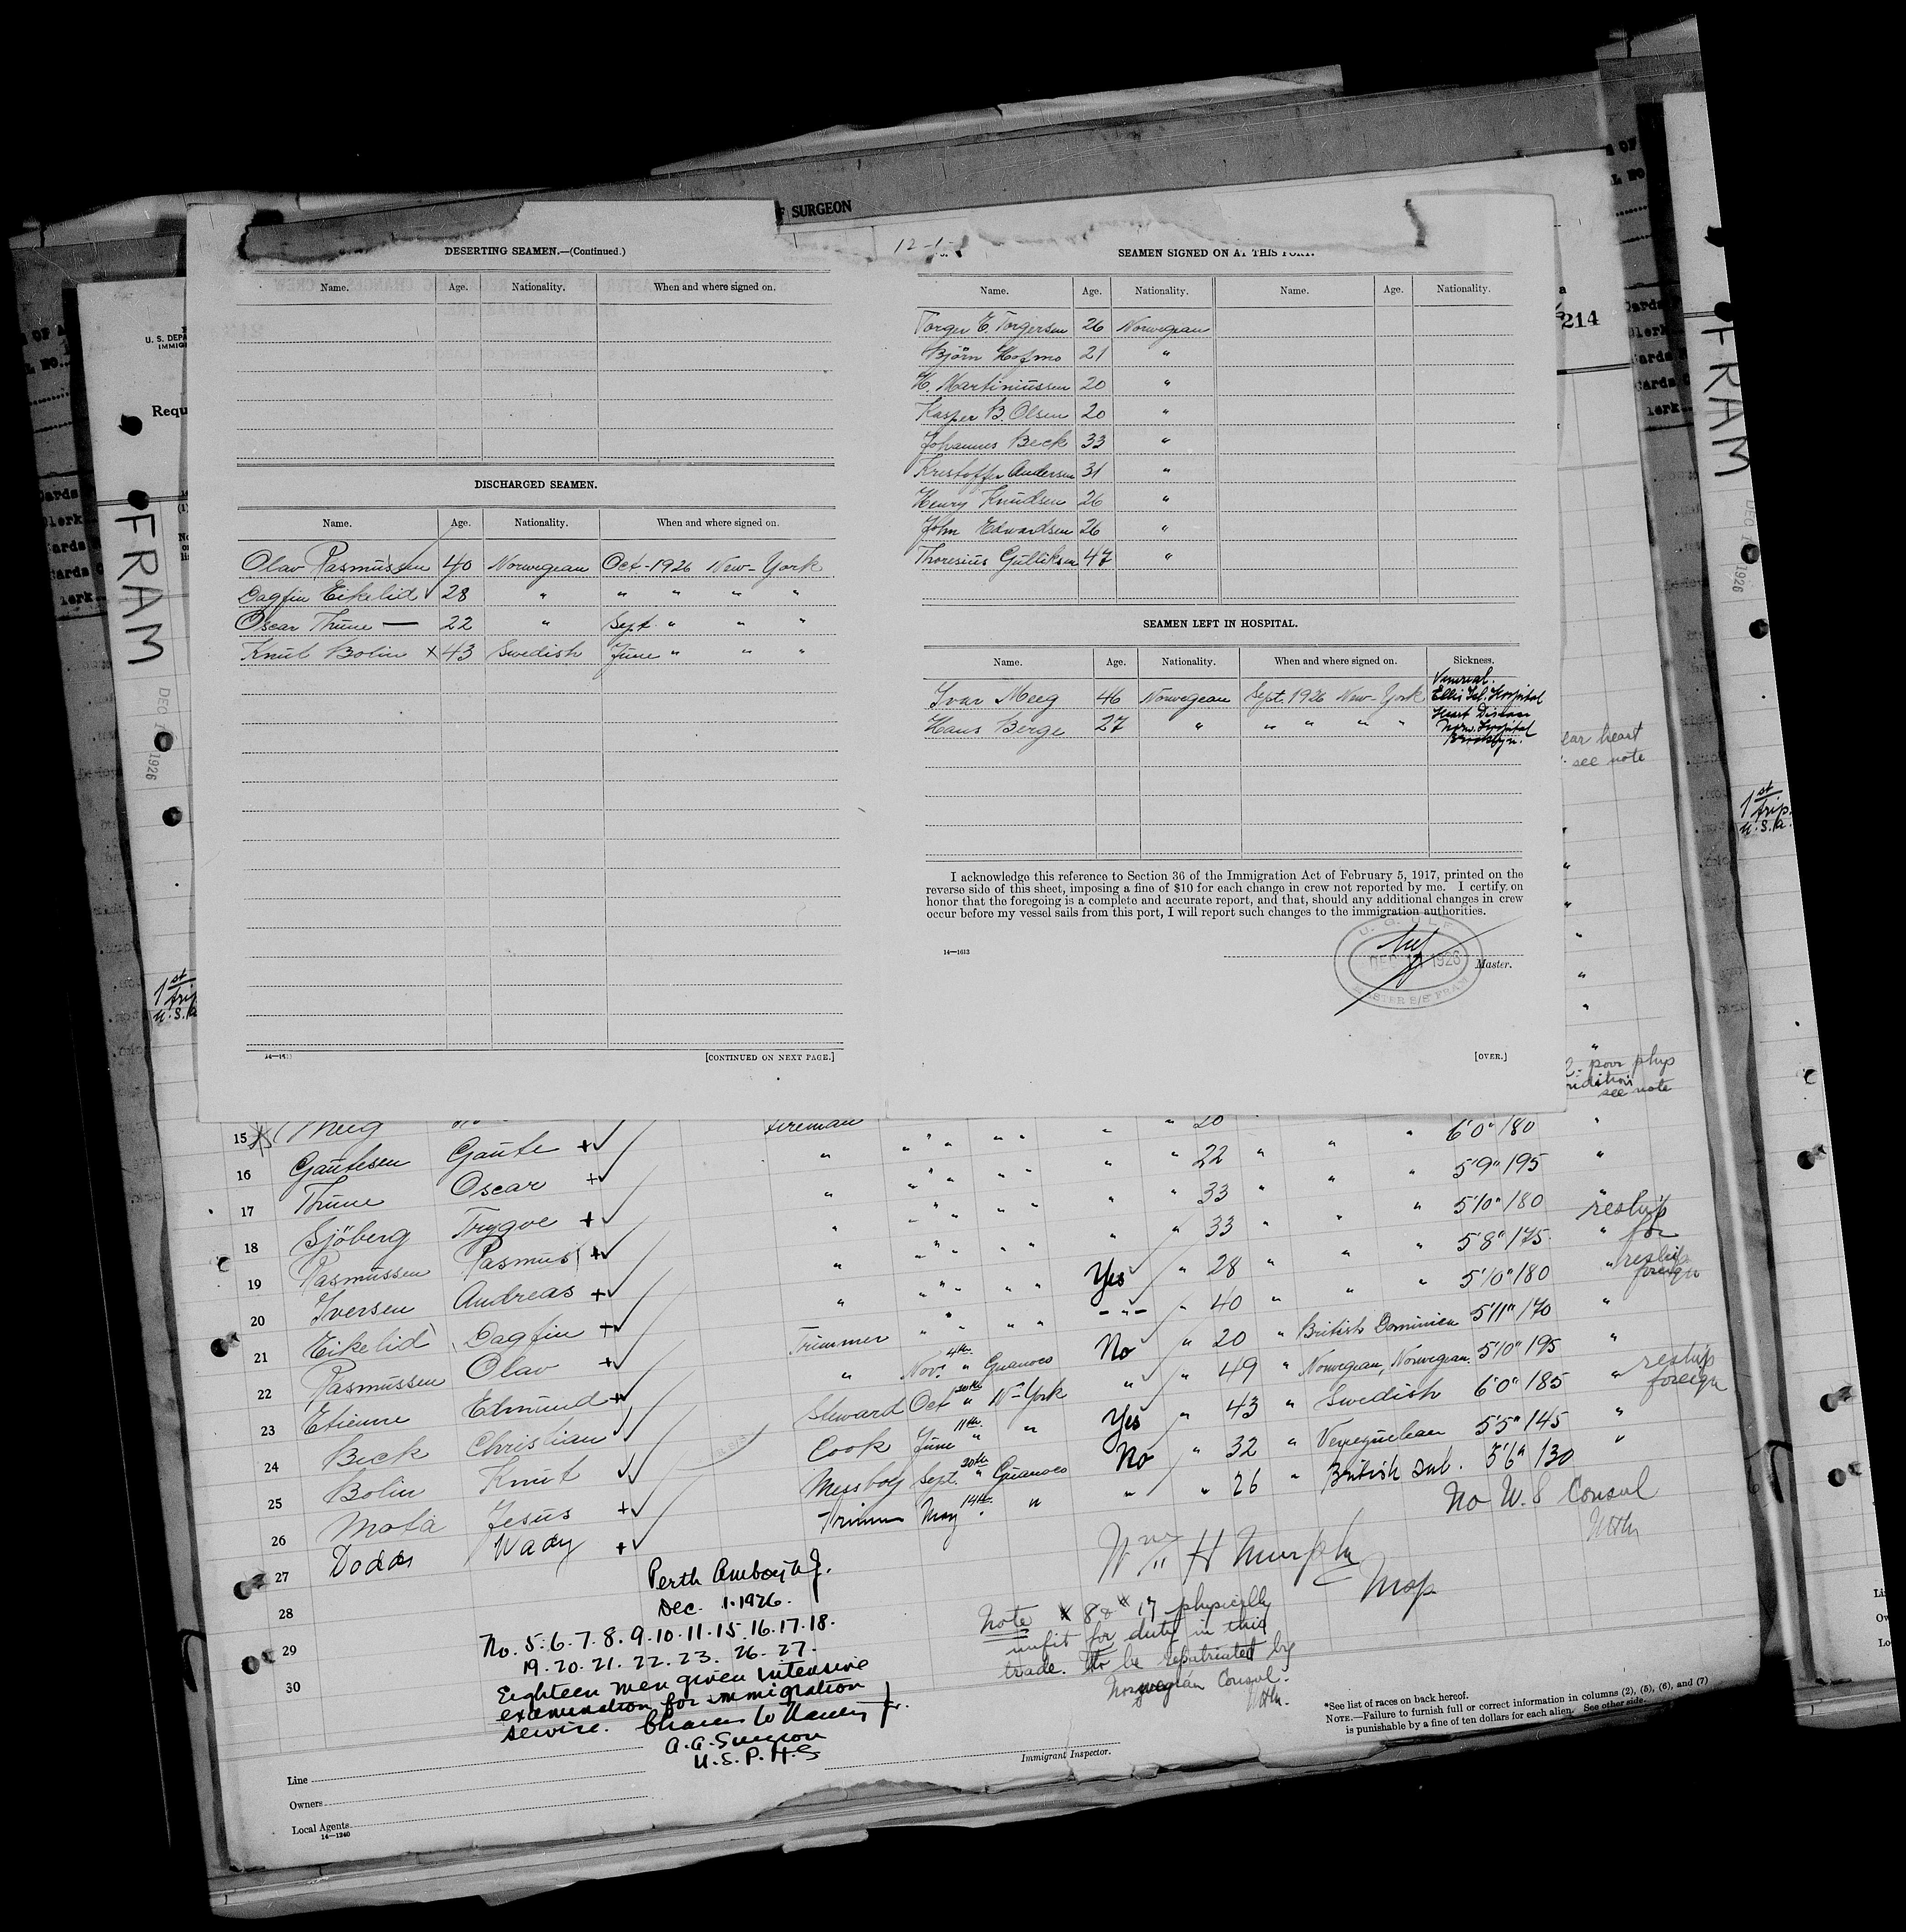 F SURGEON
DESERTING SEAMEN.—(Continued.)
Name. Age. Nationality. When and where signed on.
DISCHARGED SEAMEN.
Name. Age. Nationality. When and where signed on.
Olav Rasmussen 40 Norwegian Oct-1926 New-York
Dagfin Eikelid 28 " " " " "
Oscar Thune — 22 " Sept. " " "
Knut Bolin x 43 Swedish June " " "
14—1613
[CONTINUED ON NEXT PAGE.]
12-1-
SEAMEN SIGNED ON AT THIS PORT.
Name. Age. Nationality. Name. Age. Nationality.
Torger E. Torgersen 26 Norwegian
Björn Hofmo 21 "
H. Martiniussen 20 "
Kasper B. Olsen 20 "
Johannes Beck 33 "
Kristoffer Andersen 31 "
Henry Knudsen 26 "
John Edwardsen 26 "
Thoresius Gulliksen 47 "
SEAMEN LEFT IN HOSPITAL.
Name. Age. Nationality. When and where signed on. Sickness.
Ivar Meeg 46 Norwegian Sept. 1926 New-York Venereal. Ellis Isl. Hospital
Hans Berge 27 " " " " " Heart Disease Norw. Hospital Brooklyn.
I acknowledge this reference to Section 36 of the Immigration Act of February 5, 1917, printed on the
reverse side of this sheet, imposing a fine of $10 for each change in crew not reported by me. I certify on
honor that the foregoing is a complete and accurate report, and that, should any additional changes in crew
occur before my vessel sails from this port, I will report such changes to the immigration authorities.
14—1613
DEC 1926
MASTER S/S FRAM
Master.
[OVER.]
U. S. DEPA
IMMIG
Requ
214
FRAM
DEC 1 1926
1st
trip
U.S.A.
FRAM
DEC 1 1926
1st
trip.
U.S.A.
ear heart
see note
poor phys
see note
15 Meeg fireman " " " " " " 20 6'0" 180 "
16 Gautesen Gaute +✓ " " " " " " " 22 " " " 5'9" 195 "
17 Thune Oscar + " " " " " " " 33 " " " 5'10" 180 "
18 Sjöberg Trygve +✓ " " " " " " " 33 " " " 5'8" 175 " reship for
19 Rasmussen Rasmus +✓ " " " " " Yes " 28 " " " 5'10" 180 " reship foreign
20 Iversen Andreas +✓ " " " " " -"- " 40 " British Dominion 5'11" 170 "
21 Eikelid Dagfin + Trimmer " " " " No " 20 " Norwegian, Norwegian 5'10" 195 "
22 Rasmussen Olav + " Nov. 4th " Guanoco " " 49 " Swedish 6'0" 185 " reship foreign
23 Etienne Edmund + Steward Oct 20th " N-York Yes " 43 " Venezuelean 5'5" 145 "
24 Beck Christian ✓ Cook June 11th " " No " 32 " British sub. 5'6" 130 "
25 Bolin Knut ✓ Messboy Sept. 20th " Guanoco " " 26
26 Mota Jesus +✓ Trimm May 14th "
27 Dodds Wady +✓
28
29
30
No U.S Consul
Wm H Murphy
Perth Amboy N.J.
Dec. 1. 1926.
No. 5. 6. 7. 8. 9. 10. 11. 15. 16. 17. 18.
19. 20. 21. 22. 23. 26. 27.
Eighteen men given intensive
examination for immigration
service.
A.A. Surgeon
U.S.P.H.S
Note # 8 & # 17 physically
unfit for duty in this
trade. To be repatriated by
Norwegian Consul.
Line
Owners
Local Agents
14—1240
Immigrant Inspector.
*See list of races on back hereof.
NOTE.—Failure to furnish full or correct information in columns (2), (5), (6), and (7)
is punishable by a fine of ten dollars for each alien. See other side.